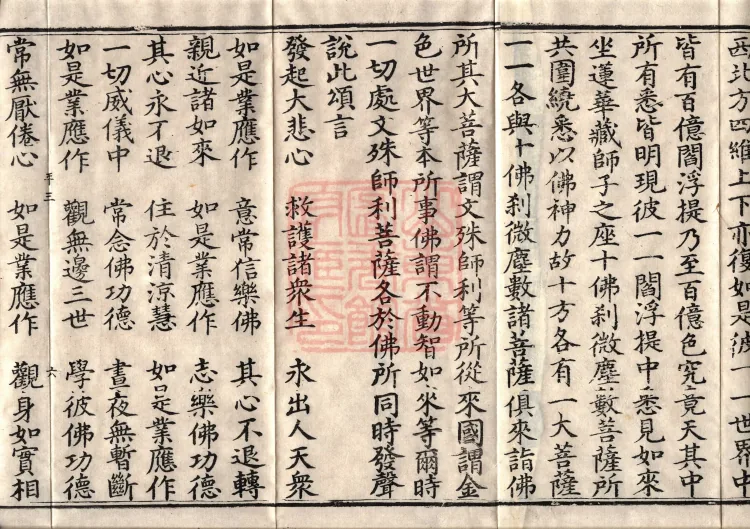 西北方四維上下亦復如是彼一一世界中
皆有百億閻浮提乃至百億色究竟天其中
所有悉皆明現彼一一閻浮提中悉見如來
坐蓮華藏師子之座十佛刹微塵數菩薩所
共圍繞悉以佛神力故十方各有一大菩薩
一一各與十佛刹微塵數諸菩薩俱來詣佛
所其大菩薩謂文殊師利等所從來國謂金
色世界等本所事佛謂不動智如來等爾時
一切處文殊師利菩薩各於佛所同時發聲
說此頌言
發起大悲心 救護諸衆生 永出人天衆
如是業應作 意常信樂佛 其心不退轉
親近諸如來 如是業應作 志樂佛功德
其心永不退 住於清涼慧 如是業應作
一切威儀中 常念佛功德 晝夜無暫斷
如是業應作 觀無邊三世 學彼佛功德
平三 六
常無厭倦心 如是業應作 觀身如實相